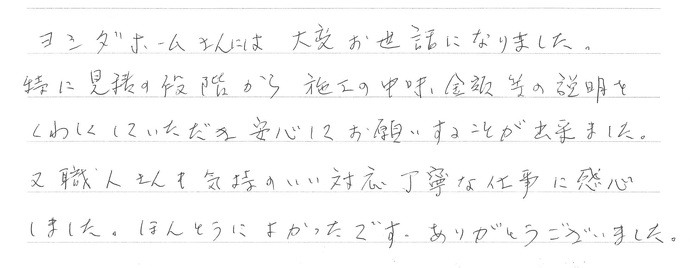 ヨシダホームさんには大変お世話になりました。
特に見積の段階から施工の中味、金額等の説明を
くわしくしていただき安心してお願いすることが出来ました。
又職人さんも気持のいい対応丁寧な仕事に感心
しました。ほんとうによかったです。ありがとうございました。